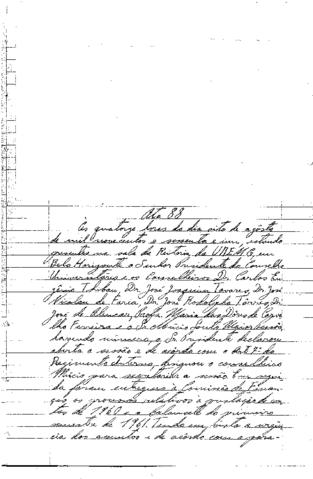 Ata 88
Às quatorze horas do dia oito de agôsto
de mil novecentos e sessenta e um, estando
presentes na sala da Reitoria da U.R.E.M.G., em
Belo Horizonte o Senhor Presidente do Conselho
Universitário e os Conselheiros Dr. Carlos Eu-
gênio Thibau, Dr. José Joaquim Tavares, Dr. José
Nicolau de Faria, Dr. José Rodolpho Tôrres, Dr.
José de Alencar, Profa. Maria das Dôres de Carva-
lho Ferreira e o Sr. Múcio
havendo número, o Sr. Presidente declarou
aberta a sessão e de acôrdo com o Art. 7º do
Regimento Interno, designou o conselheiro
Múcio para secretariar a sessão. Em segui-
da foram entregues à Comissão de Finan-
ças os processos relativos à prestação de con-
tas de 1960 e o balancete do primeiro
semestre de 1961. Tendo em vista a urgên-
cia dos assuntos e de acôrdo com o pará-